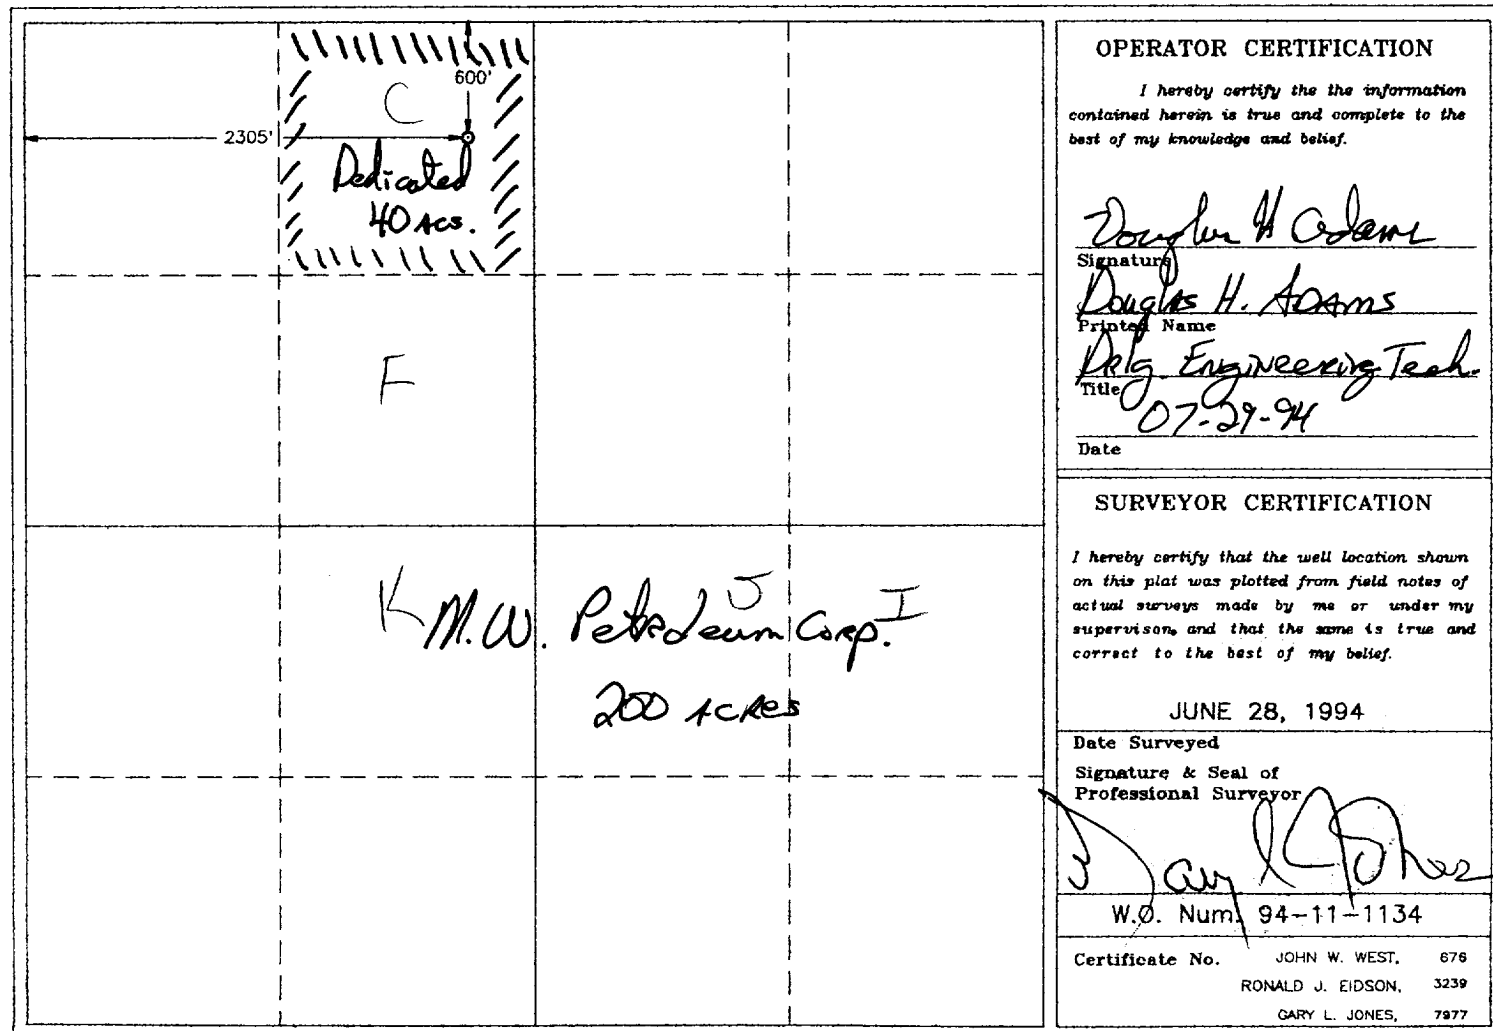 600'
C
2305'
Dedicated
40 Acs.
F
K M.W. Petroleum Corp. J I
200 Acres
OPERATOR CERTIFICATION
I hereby certify the the information
contained herein is true and complete to the
best of my knowledge and belief.
Douglas H Adams
Signature
Douglas H. ADAMS
Printed Name
Drlg. Engineering Tech.
Title
07-29-94
Date
SURVEYOR CERTIFICATION
I hereby certify that the well location shown
on this plat was plotted from field notes of
actual surveys made by me or under my
supervison, and that the same is true and
correct to the best of my belief.
JUNE 28, 1994
Date Surveyed
Signature & Seal of
Professional Surveyor
Gary L Jones
W.O. Num. 94-11-1134
Certificate No. JOHN W. WEST, 676
RONALD J. EIDSON, 3239
GARY L. JONES, 7977